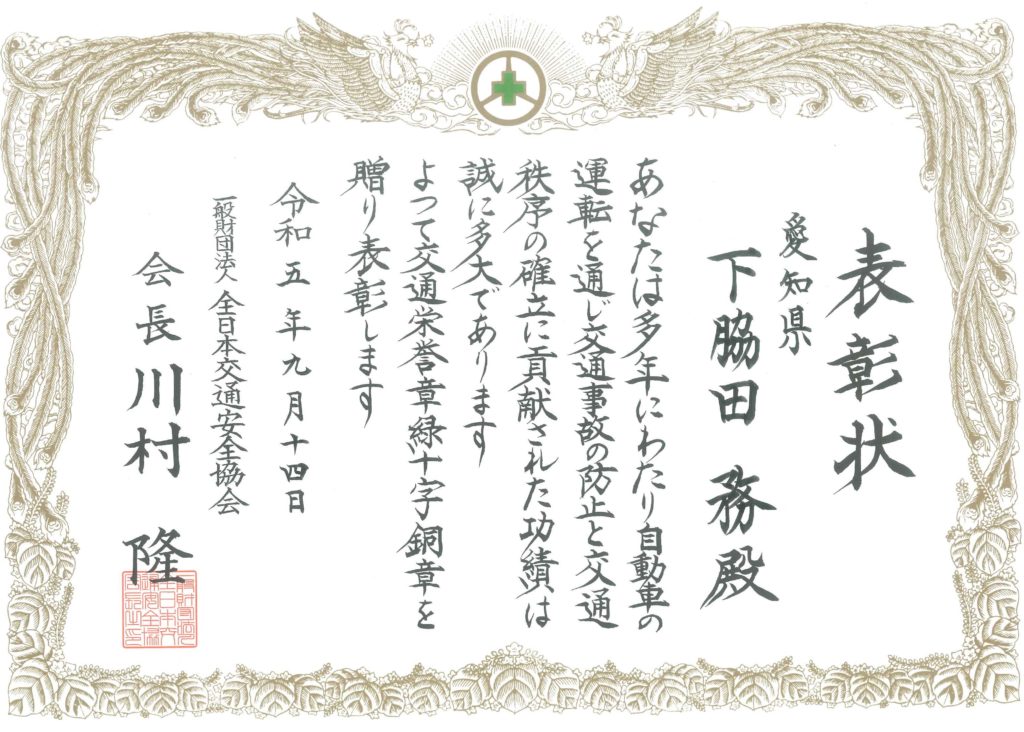 表彰状
愛知県
下脇田 務殿
あなたは多年にわたり自動車の
運転を通じ交通事故の防止と交通
秩序の確立に貢献された功績は
誠に多大であります
よつて交通栄誉章緑十字銅章を
贈り表彰します
令和五年九月十四日
一般財団法人 全日本交通安全協会
会長 川村 隆